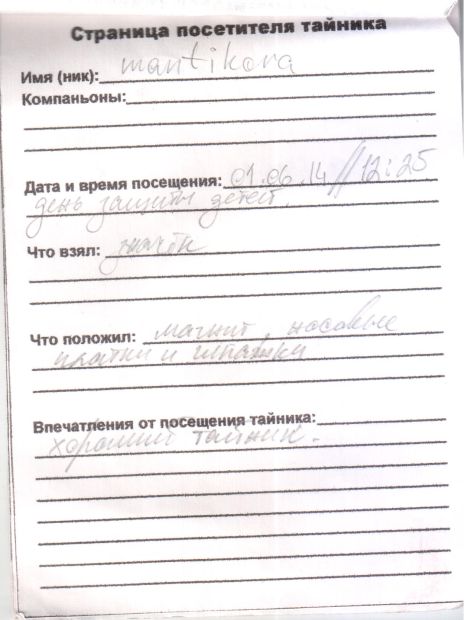 Страница посетителя тайника
Имя (ник): mantikora
Компаньоны:
Дата и время посещения: 01.06.14 // 12:25
день защиты детей.
Что взял: значок
Что положил: магнит, носовые
платки и
Впечатления от посещения тайника:
хороший тайник.